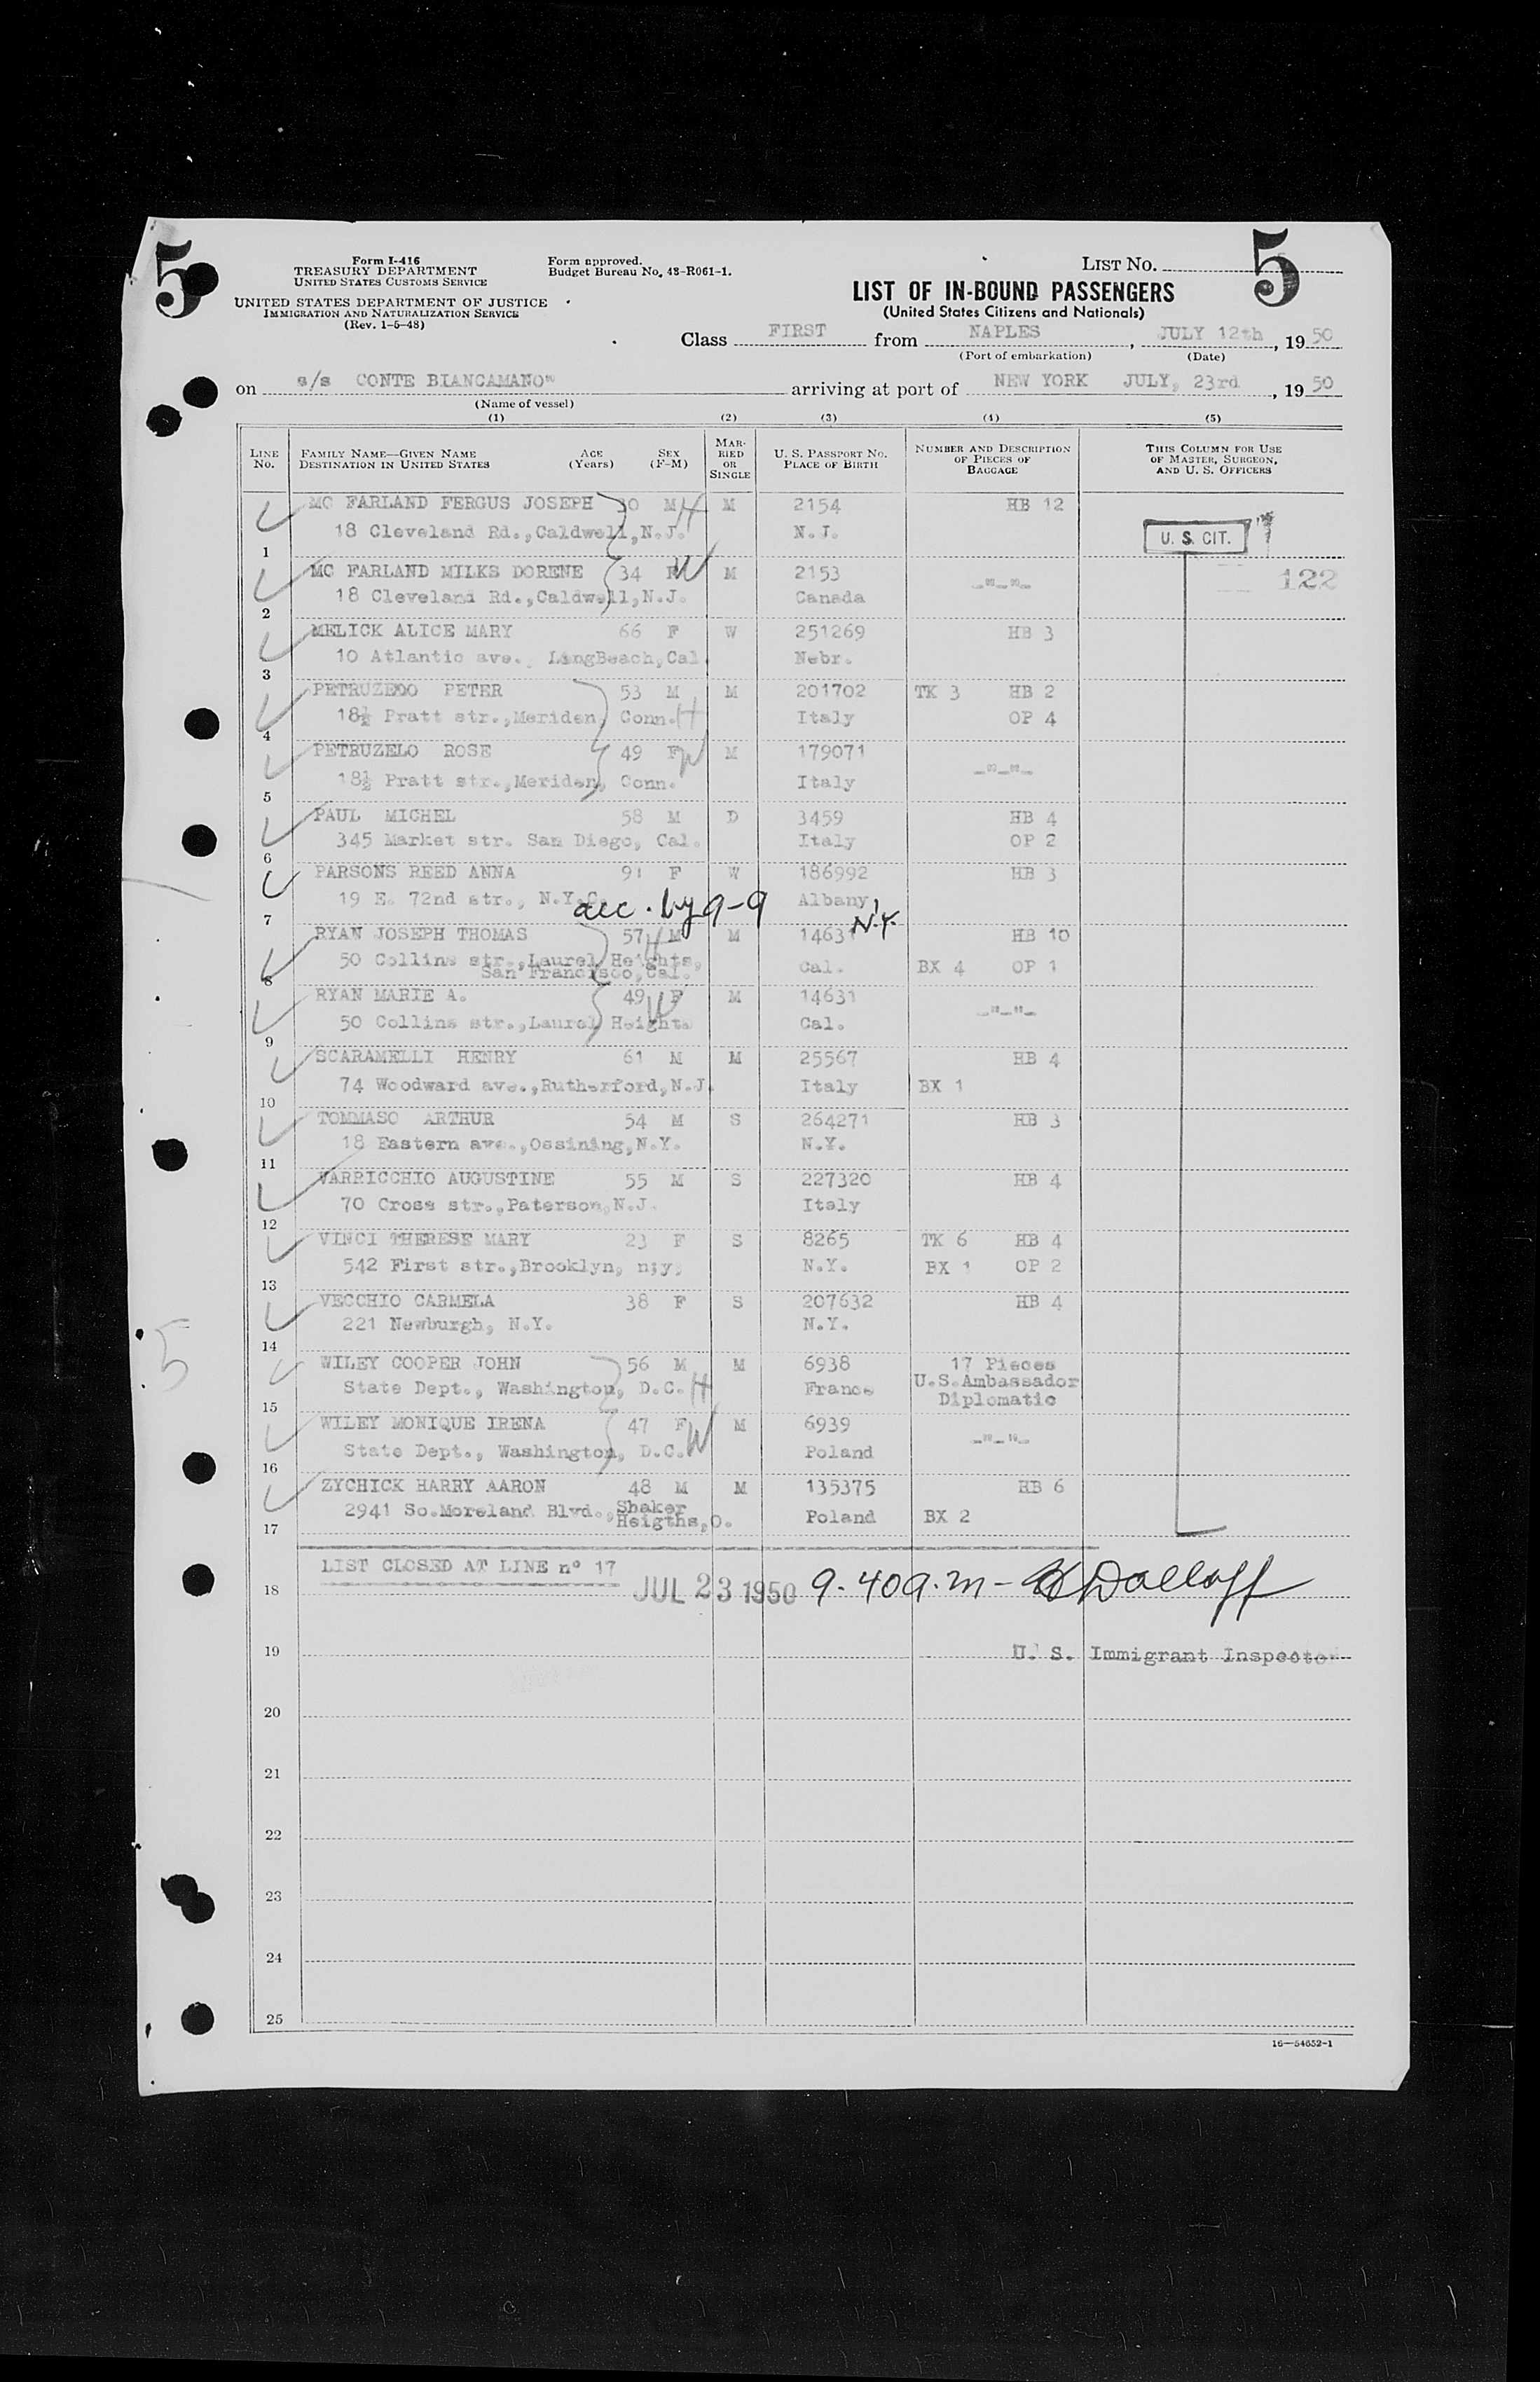 5
Form I-416
TREASURY DEPARTMENT
UNITED STATES CUSTOMS SERVICE
UNITED STATES DEPARTMENT OF JUSTICE
IMMIGRATION AND NATURALIZATION SERVICE
(Rev. 1-5-48)
Form approved.
Budget Bureau No. 43-R061-1.
LIST NO. 5
LIST OF IN-BOUND PASSENGERS
(United States Citizens and Nationals)
Class FIRST from NAPLES, JULY 12th, 1950
(Port of embarkation) (Date)
on s/s CONTE BIANCAMANO" arriving at port of NEW YORK JULY, 23rd, 1950
(Name of vessel)
(1) (2) (3) (4) (5)
LINE No. FAMILY NAME—GIVEN NAME DESTINATION IN UNITED STATES AGE (Years) SEX (F-M) MARRIED OR SINGLE U. S. PASSPORT NO. PLACE OF BIRTH NUMBER AND DESCRIPTION OF PIECES OF BAGGAGE THIS COLUMN FOR USE OF MASTER, SURGEON, AND U. S. OFFICERS
MC FARLAND FERGUS JOSEPH 30 M H M 2154 HB 12
1 18 Cleveland Rd.,Caldwell,N.J. N.J. U. S. CIT.
MC FARLAND MILKS DORENE 34 F W M 2153 -"-"- 122
2 18 Cleveland Rd.,Caldwell,N.J. Canada
MELICK ALICE MARY 66 F W 251269 HB 3
3 10 Atlantic ave. LingBeach,Cal. Nebr.
PETRUZEDO PETER 53 M M 201702 TK 3 HB 2
4 18½ Pratt str.,Meriden, Conn. H Italy OP 4
PETRUZELO ROSE 49 F W M 179071 -"-"-
5 18½ Pratt str.,Meriden, Conn. Italy
PAUL MICHEL 58 M D 3459 HB 4
6 345 Market str. San Diego, Cal. Italy OP 2
PARSONS REED ANNA 91 F W 186992 HB 3
7 19 E. 72nd str., N.Y.C. acc. by 9-9 Albany, N.Y.
RYAN JOSEPH THOMAS 57 H M M 14631 HB 10
8 50 Collins str.,Laurel Heights, Cal. BX 4 OP 1
San Francisco,Cal.
RYAN MARIE A. 49 W F M 14631 -"-"-
9 50 Collins str.,Laurel Heights Cal.
SCARAMELLI HENRY 61 M M 25567 HB 4
10 74 Woodward ave.,Rutherford,N.J. Italy BX 1
TOMMASO ARTHUR 54 M S 264271 HB 3
11 18 Eastern ave.,Ossining,N.Y. N.Y.
VARRICCHIO AUGUSTINE 55 M S 227320 HB 4
12 70 Cross str.,Paterson,N.J. Italy
VINCI THERESE MARY 23 F S 8265 TK 6 HB 4
13 542 First str.,Brooklyn, n;y. N.Y. BX 1 OP 2
VECCHIO CARMELA 38 F S 207632 HB 4
14 221 Newburgh, N.Y. N.Y.
WILEY COOPER JOHN 56 M M 6938 17 Pieces
15 State Dept., Washington, D.C. H France U.S.Ambassador
Diplomatic
WILEY MONIQUE IRENA 47 F W M 6939 -"-"-
16 State Dept., Washington, D.C. Poland
ZYCHICK HARRY AARON 48 M M 135375 HB 6
17 2941 So.Moreland Blvd.,Shaker Heigths,O. Poland BX 2
18 LIST CLOSED AT LINE n° 17 JUL 23 1950 9.40 a.m-
19 U. S. Immigrant Inspector
20
21
22
23
24
25
5
16—54652-1